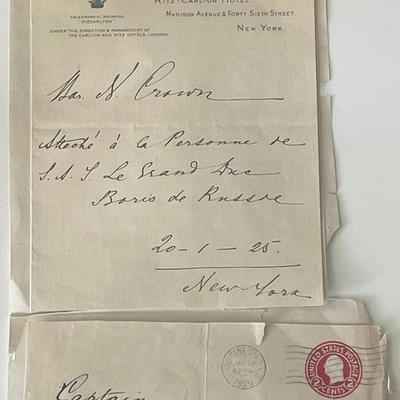 RITZ-CARLTON HOTEL
MADISON AVENUE & FORTY SIXTH STREET,
NEW YORK.
TELEGRAPHIC ADDRESS
"RIZCARLTON"
UNDER THE DIRECTION & MANAGEMENT OF
THE CARLTON AND RITZ HOTELS, LONDON
N. Crown
Attaché à la Personne de
S. A. I Le Grand Duc
Boris de Russie
20-1-25.
New-York
Captain
1925
UNITED STATES POSTAGE
2 CENTS 2